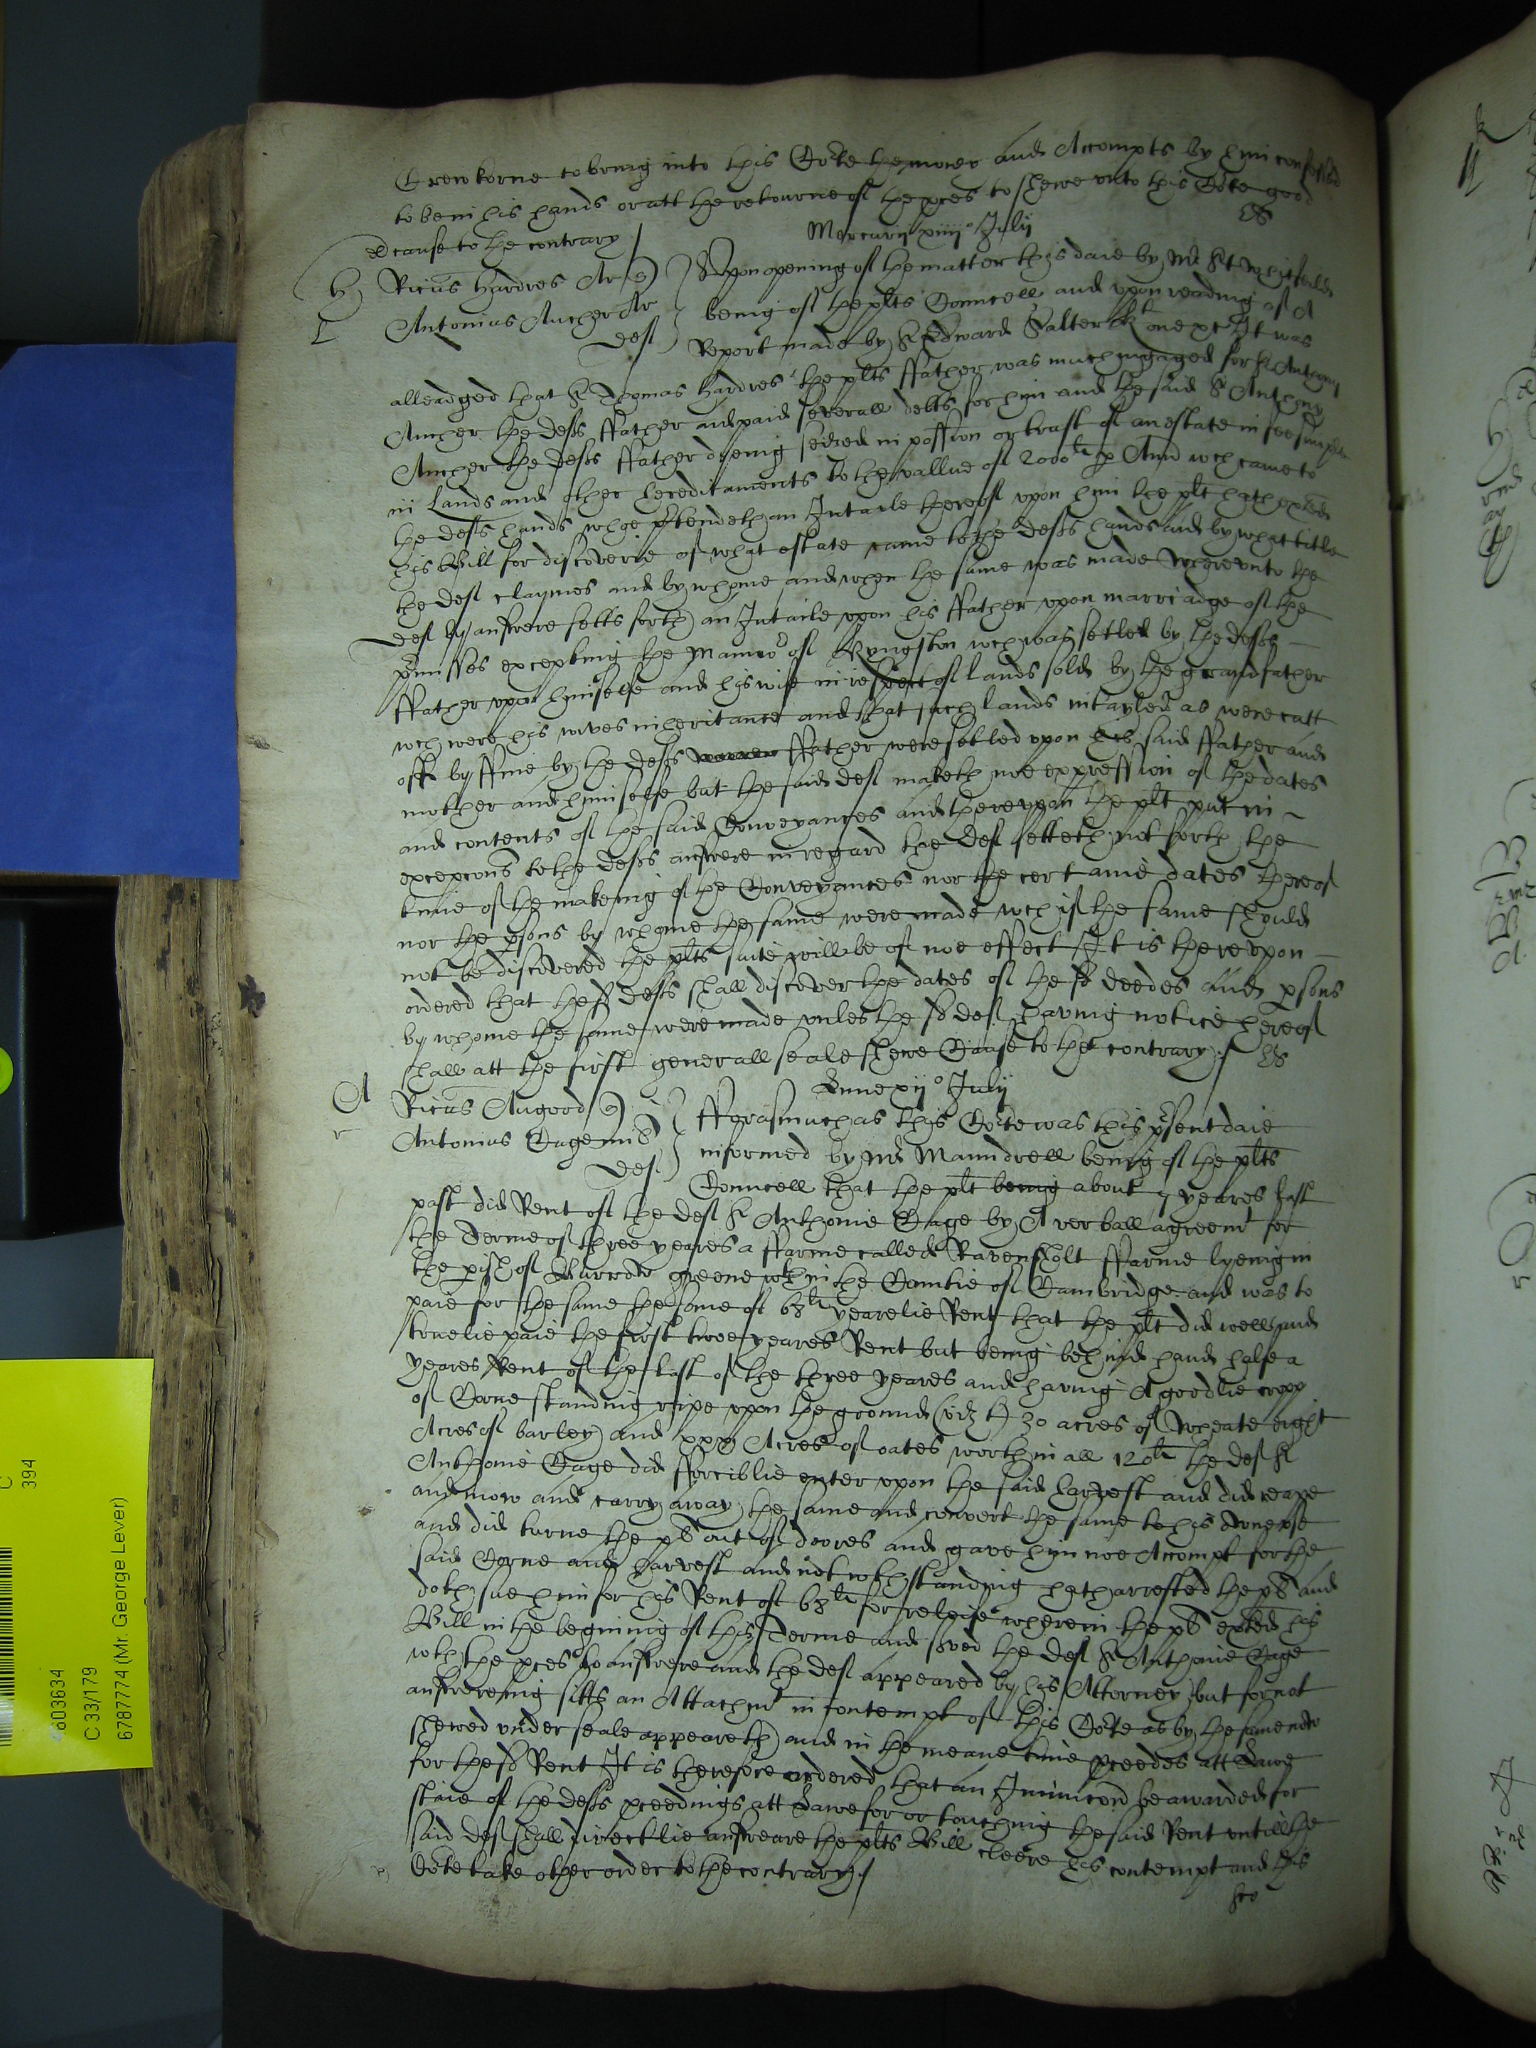 Crewkerne to bring into this Corte the money and Accompts by him confessed
to be in his hands or att the retourne of the pces to shewe unto this Corte good
cause to the contrary
Mercurij xiiij° Julij
H
Ricus Hardres Ar q
Antonius Aucher Ar
def
Uppon opening of the matter this daie by Mr
being of the plts Councell and upon reading of A
Report made by Sr Edward Salter kt one &c It was
alleadged that Sr Thomas Hardres the plts ffather was much ingaged for Sr Anthony
Aucher the defts ffather and paid severall debts for him and the said Sr Anthony
Aucher the defts ffather dyeing seized in possion or trust of an estate in fee simple
in lands and other hereditaments to the vallue of 2000li p Ann wch came to
the defts hands whoe ptendeth an Intaile thereof upon him the plt hath exhited
his Bill for discoverie of what estate came to the defts hands and by what title
the def claymes and by whome and when the same was made Whereunto the
def by answere setts forth an Intaile upon his ffather upon marriadge of the
pmisses excepting the Mannor of Kyngston wch was setled by the defts
ffather upon himselfe and his wife in respect of lands sold by the grandfather
wch were his wives inheritance and that such lands intayled as were cutt
off by ffine by the defts ffather were setled upon his said ffather and
mother and himselfe but the said def maketh noe expression of the dates
and contents of the said Conveyances and thereupon the plt put in
excepcons to the defts answere in regard the def setteth not forth the
time of the makeing of the Conveyances nor the certaine dates thereof
nor the psons by whome the same were made wch if the same should
not be discovered the plts suite will be of noe effect It is thereupon
ordered that the sd defts shall discover the dates of the sd deedes and psons
by whome the same were made unles the sd def having notice hereof
shall att the first generall seale shewe Cause to the contrary
A
Lune xij° Julij
Ricus Angood q
Antonius Cage mil
def
fforasmuch as this Corte was this psent daie
informed by Mr Maundrell being of the plts
Councell that the plt being about 7 yeares last
past did Rent of the def Sr Anthonie Cage by A verball agreemt for
the Terme of three yeares a ffarme called Ravensholt ffarme lyeing in
the pish of Burrow greene wthin the Countie of Cambridge and was to
paie for the same the some of 68li yearelie Rent that the plt did well and
truelie paie the first twoe yeares Rent but being behind hand halfe a
yeares Rent of the last of the three yeares and having A goodlie cropp
of Corne standing ripe upon the ground (vidzt) 30 acres of Wheate eight
Acres of barley and xxx Acres of oates worth in all 120li the def Sr
Anthonie Cage did fforciblie enter upon the said harvest and did reape
and mow and carry away the same and convert the same to his owne use
and did turne the plt out of doores and gave him noe Accompt for the
said Corne and harvest and notwthstanding hath arrested the plt and
doth sue him for his Rent of 68li for releife wherein the plt exhited his
Bill in the begining of this Terme and served the def Sr Anthonie Cage
wth the pces to answere and the def appeared by his Attorney but for not
answereing sitts an Attachmt in contempt of this Corte as by the same now
shewed under seale appeareth and in the meane time pceedes att Lawe
for the sd Rent It is therefore ordered that an Iniunccon be awarded for
staie of the defts pceedings att Lawe for or touching the said Rent untill the
said def shall directlie answeare the plts Bill cleere his contempt and this
Corte take other order to the contrary
C
394
603634
C 33/179
6787774 (Mr. George Lever)